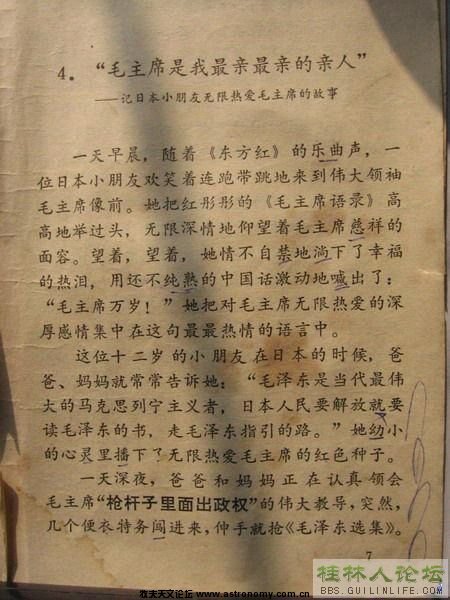 4．“毛主席是我最亲最亲的亲人”
——记日本小朋友无限热爱毛主席的故事
一天早晨，随着《东方红》的乐曲声，一
位日本小朋友欢笑着连跑带跳地来到伟大领袖
毛主席像前。她把红彤彤的《毛主席语录》高
高地举过头，无限深情地仰望着毛主席慈祥的
面容。望着，望着，她情不自禁地淌下了幸福
的热泪，用还不纯熟的中国话激动地喊出了：
“毛主席万岁！”她把对毛主席无限热爱的深
厚感情集中在这句最最热情的语言中。
这位十二岁的小朋友在日本的时候，爸
爸、妈妈就常常告诉她：“毛泽东是当代最伟
大的马克思列宁主义者，日本人民要解放就要
读毛泽东的书，走毛泽东指引的路。”她幼小
的心灵里播下了无限热爱毛主席的红色种子。
一天深夜，爸爸和妈妈正在认真领会
毛主席“枪杆子里面出政权”的伟大教导，突然，
几个便衣特务闯进来，伸手就抢《毛泽东选集》。
7
桂林人论坛
BBS.GUILINLIFE.COM
牧夫天文论坛 www.astronomy.com.cn